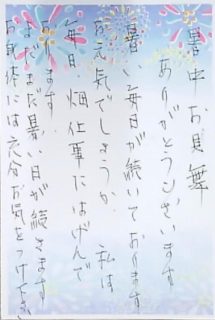 暑中お見舞
ありがとうございます
暑い毎日が続いております
お元気でしょうか 私は
毎日、畑仕事にはげんで
ます.
まだまだ暑い日が続きます
お身体には充分お気をつけ